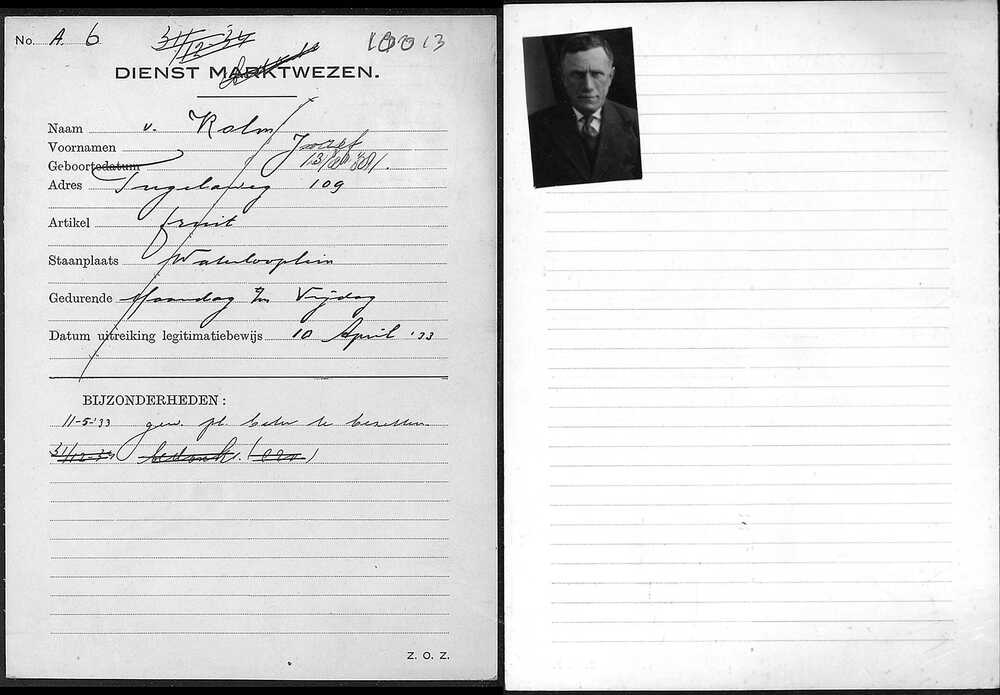 No. A. 6 31/12-34 10013
DIENST MARKTWEZEN.
Naam v. Kolm
Voornamen Jozef
Geboortedatum 13/
Adres Ingelaweg 109
Artikel fruit
Staanplaats Waterlooplein
Gedurende Maandag t/m Vrijdag
Datum uitreiking legitimatiebewijs 10 April '33
BIJZONDERHEDEN:
11-5-'33 gew. pl. beter te bezetten
31/12-34 bedankt.
Z. O. Z.